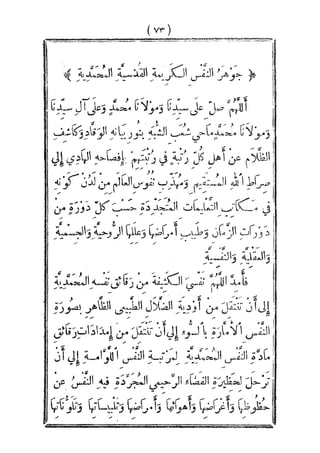 ( ٧٣ )
﴿ جَوْهَرُ النَّفْسِ الْكَرِيمَةِ الْقُدْسِيَّةِ الْمُحَمَّدِيَّةِ ﴾
أَللّٰهُمَّ صَلِّ عَلَى سَيِّدِنَا وَمَوْلَانَا مُحَمَّدٍ وَعَلَى آلِ سَيِّدِنَا
وَمَوْلَانَا مُحَمَّدٍ مَاحِي شُعَبِ الشُّبَهِ بِنُورِ بَيَانِهِ الْوَقَّادِ وَكَاشِفِ
الظَّلَامِ عَنْ أَهْلِ كُلِّ رُتْبَةٍ فِي رُتْبَتِهِمْ بِإِفْصَاحِهِ الْهَادِي إِلَى
صِرَاطِ اللهِ الْمُسْتَقِيمِ وَمُهَذِّبِ نُفُوسِ الْعَالَمِ مِنْ لَدُنْ كَوْنِهِ
فِي مَكَاتِبِ التَّعْلِيمَاتِ الْمُتَجَدِّدَةِ حَسْبَ كُلِّ دَوْرَةٍ مِنْ
دَوْرَاتِ الزَّمَانِ وَطَبِيبِ أَمْرَاضِهَا وَعِلَلِهَا الرُّوحِيَّةِ وَالْجِسْمِيَّةِ
وَالْعَقْلِيَّةِ وَالنَّفْسِيَّةِ
فَأَمِدَّ اللّٰهُمَّ نَفْسِيَ الْكَثِيفَةَ مِنْ رَقَائِقِ نَفْسِهِ الْمُحَمَّدِيَّةِ
إِلَى أَنْ تَنْتَقِلَ مِنْ أَوْدِيَةِ الضَّلَالِ الطَّبِيعِيِّ الظَّاهِرِ بِصُورَةِ
النَّفْسِ الْأَمَّارَةِ بِالسُّوءِ إِلَى أَنْ تَنْتَقِلَ مِنْ إِمْدَادَاتِ رَقَائِقِ
مَادَّةِ النَّفْسِ الْمُحَمَّدِيَّةِ لِمَرْتَبَةِ النَّفْسِ اللَّوَّامَةِ إِلَى أَنْ
تَرْحَلَ لِحَظِيرَةِ الْفَضَاءِ الرَّحِيمِيِّ الْمُجَرَّدَةِ فِيهِ النَّفْسُ عَنْ
حُظُوظِهَا وَأَغْرَاضِهَا وَأَهْوَائِهَا وَأَمْرَاضِهَا وَتَلْبِيسَاتِهَا وَتَلَوُّنَاتِهَا